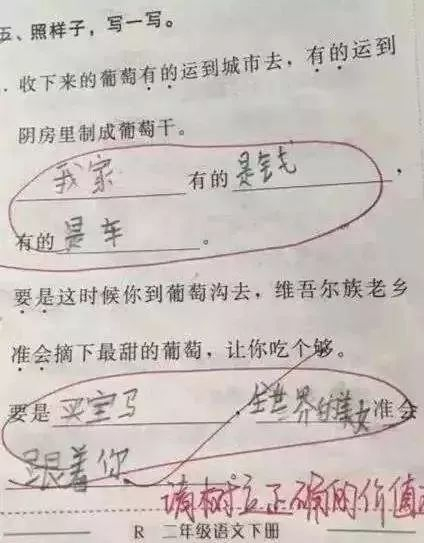 五、照样子，写一写。
收下来的葡萄有的运到城市去，有的运到
阴房里制成葡萄干。
我家 有的 是钱，
有的 是车。
要是这时候你到葡萄沟去，维吾尔族老乡
准会摘下最甜的葡萄，让你吃个够。
要是 买宝马，全世界的美女准会
跟着你
请树立正确的价值
R 二年级语文下册